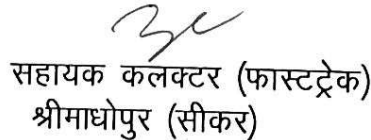 सहायक कलक्टर (फास्टट्रेक)
श्रीमाधोपुर (सीकर)